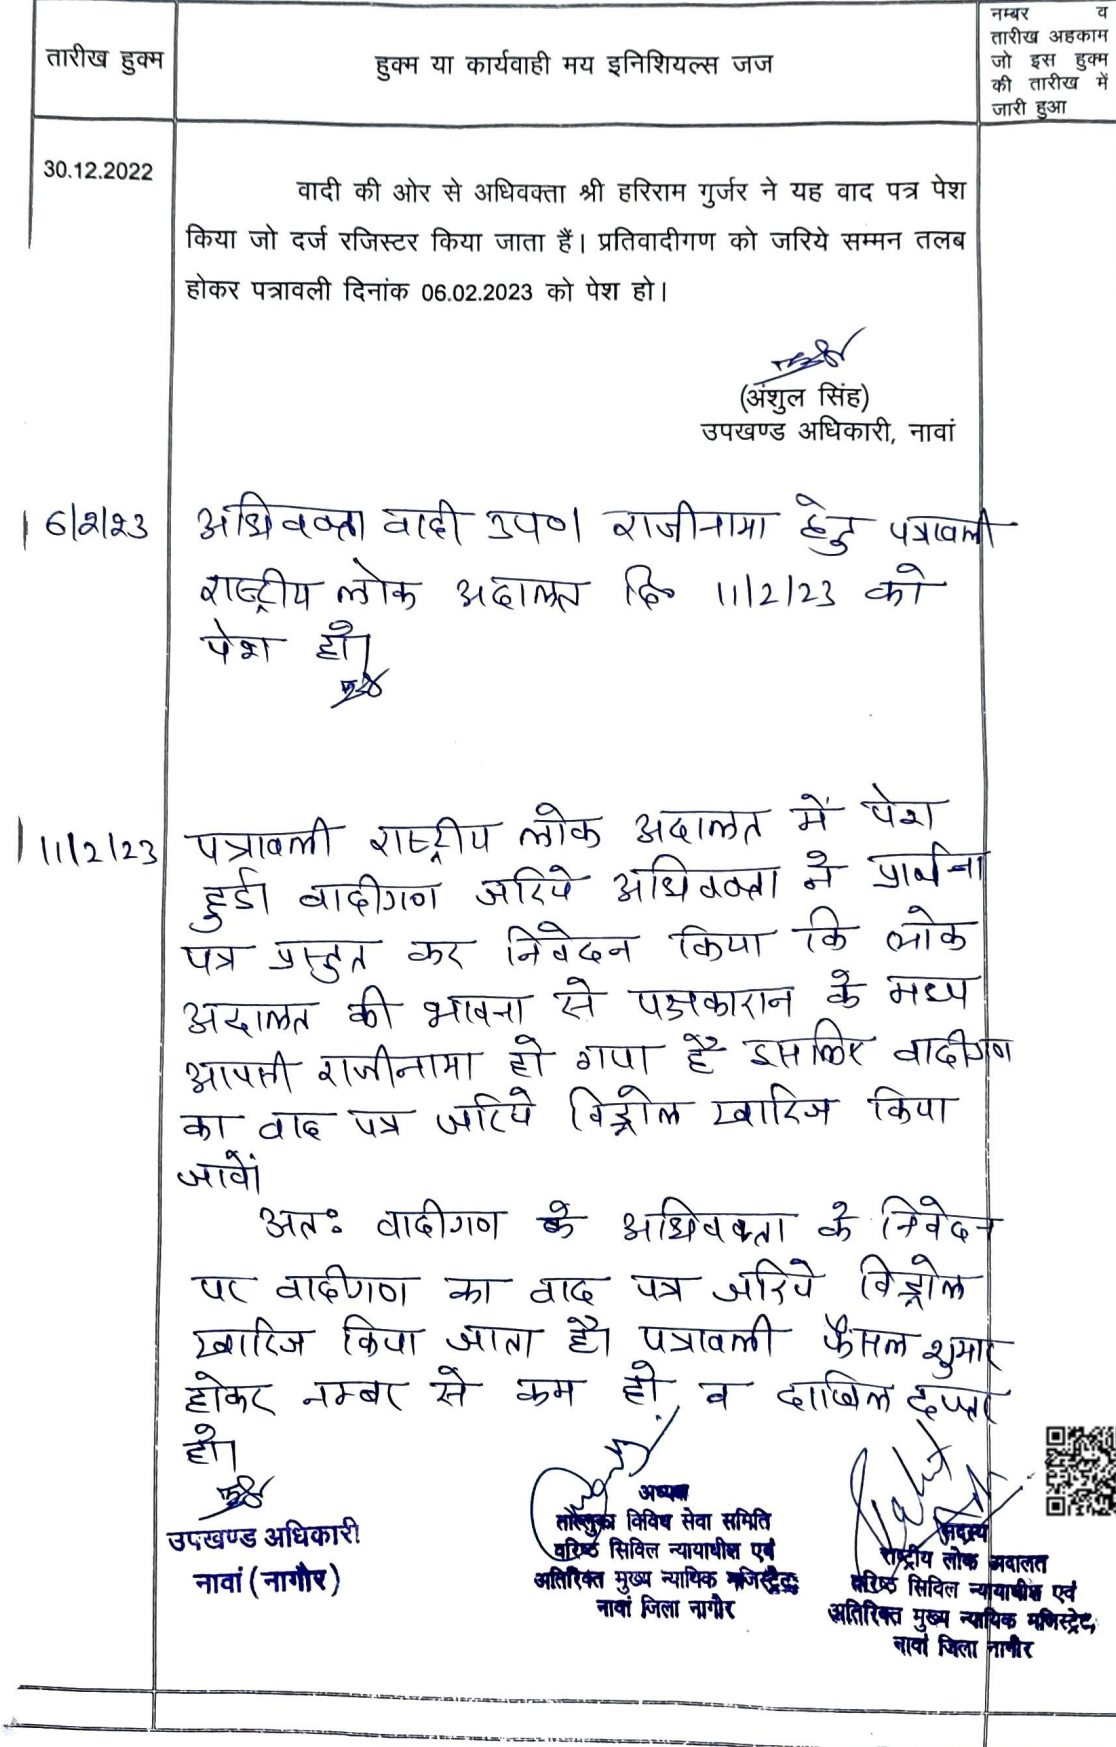 तारीख हुक्म
हुक्म या कार्यवाही मय इनिशियल्स जज
नम्बर व
तारीख अहकाम
जो इस हुक्म
की तारीख में
जारी हुआ
30.12.2022
वादी की ओर से अधिवक्ता श्री हरिराम गुर्जर ने यह वाद पत्र पेश
किया जो दर्ज रजिस्टर किया जाता हैं। प्रतिवादीगण को जरिये सम्मन तलब
होकर पत्रावली दिनांक 06.02.2023 को पेश हो।
(अंशुल सिंह)
उपखण्ड अधिकारी, नावां
6/2/23 अधिवक्ता वादी उप0। राजीनामा हेतु पत्रावली
राष्ट्रीय लोक अदालत दि0 11/2/23 को
पेश हो।
11/2/23 पत्रावली राष्ट्रीय लोक अदालत में पेश
हुई। वादीगण जरिये अधिवक्ता ने प्रार्थना
पत्र प्रस्तुत कर निवेदन किया कि लोक
अदालत की भावना से पक्षकारान के मध्य
आपसी राजीनामा हो गया है इसलिए वादीगण
का वाद पत्र जरिये विड्रोल खारिज किया
जावें।
अतः वादीगण के अधिवक्ता के निवेदन
पर वादीगण का वाद पत्र जरिये विड्रोल
खारिज किया जाता है। पत्रावली फैसल शुमार
होकर नम्बर से कम हो व दाखिल दफ्तर
हो।
उपखण्ड अधिकारी
नावां (नागौर)
अध्यक्ष
ताल्लुका विविध सेवा समिति
वरिष्ठ सिविल न्यायाधीश एवं
अतिरिक्त मुख्य न्यायिक मजिस्ट्रेट
नावां जिला नागौर
सदस्य
राष्ट्रीय लोक अदालत
वरिष्ठ सिविल न्यायाधीश एवं
अतिरिक्त मुख्य न्यायिक मजिस्ट्रेट,
नावां जिला नागौर